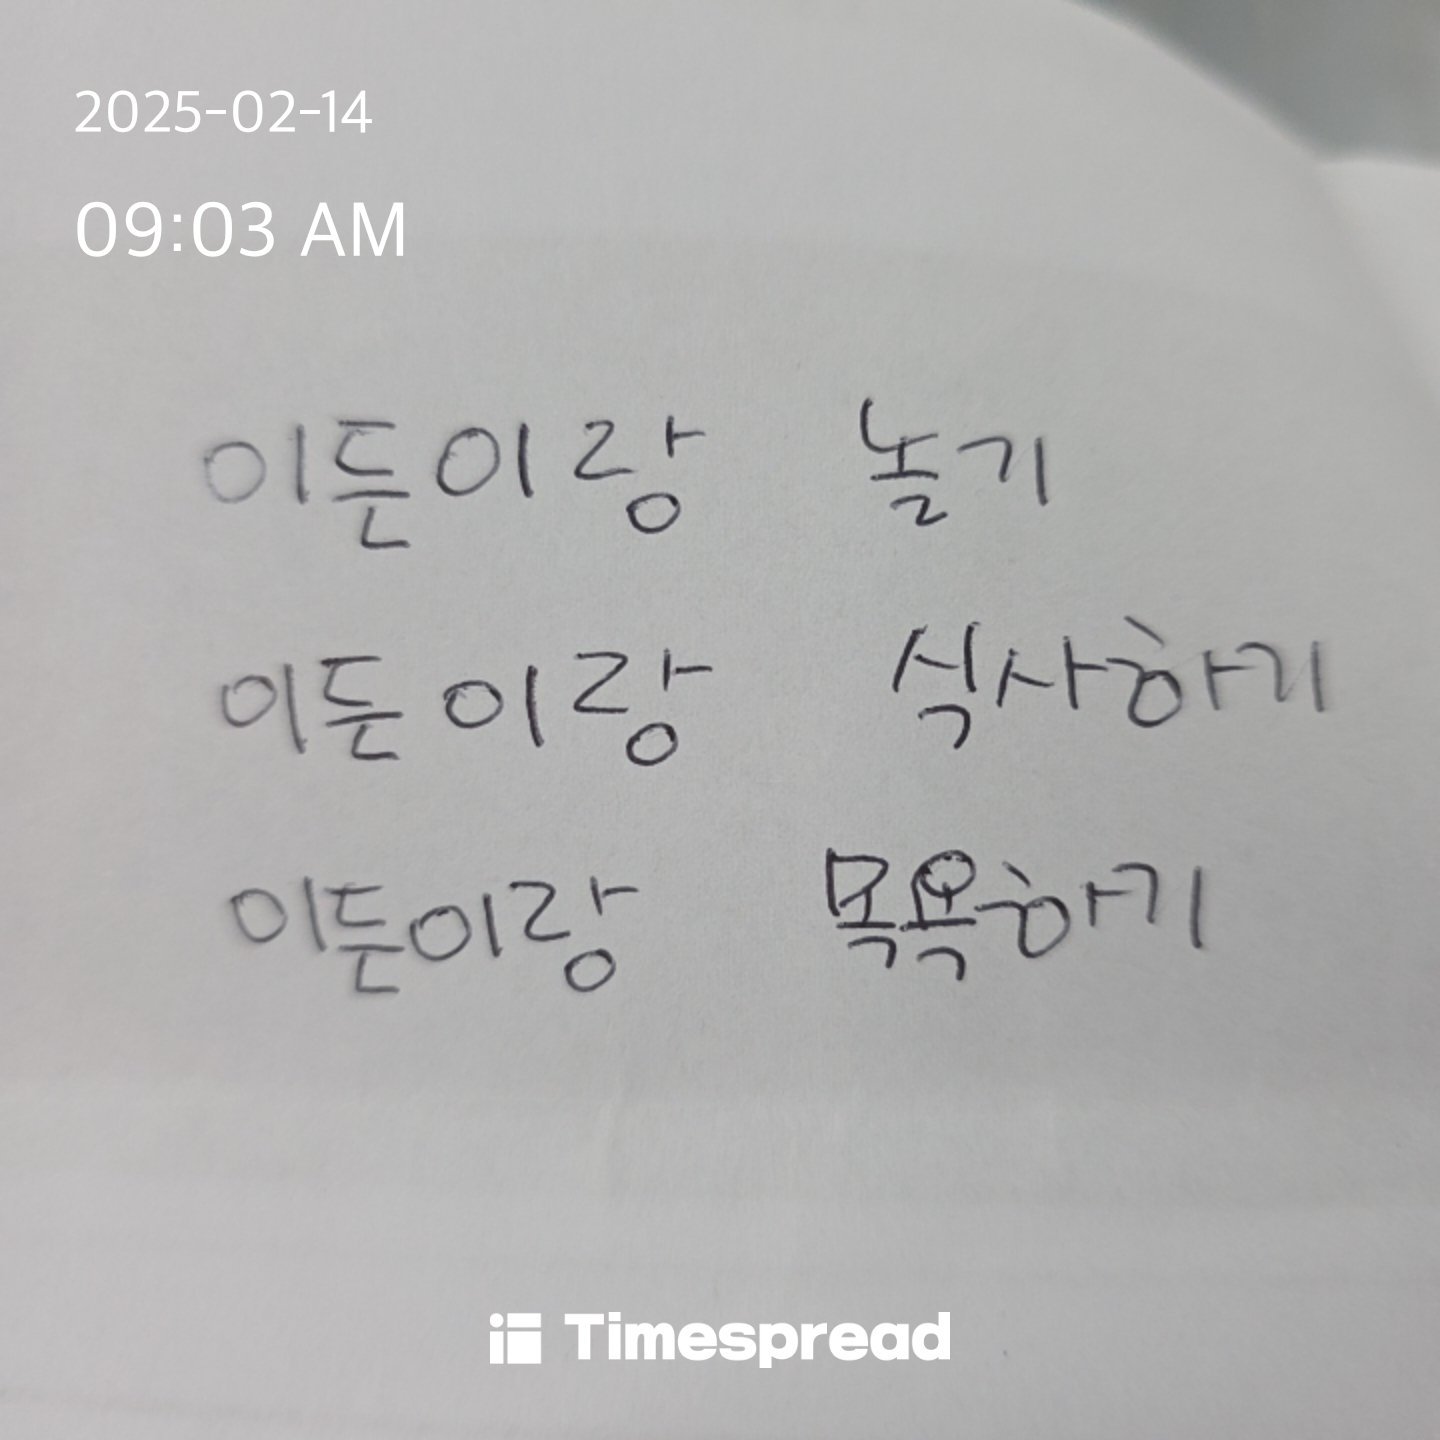 2025-02-14
09:03 AM
이든이랑 놀기
이든이랑 식사하기
이든이랑 목욕하기
Timespread